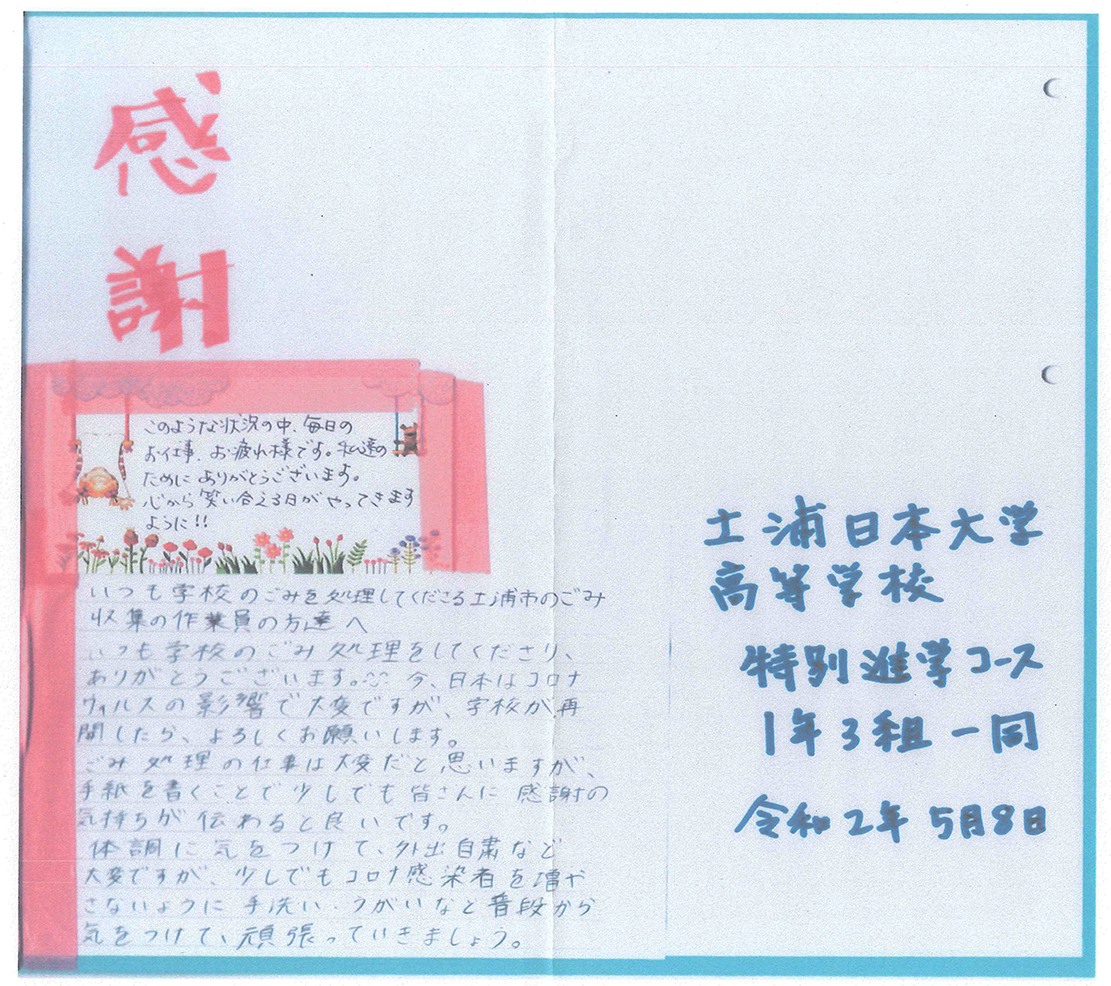 感
謝
このような状況の中、毎日の
お仕事、お疲れ様です。私達の
ためにありがとうございます。
心から笑い合える日がやってきます
ように!!
いつも学校のごみを処理してくださる土浦市のごみ
収集の作業員の方達へ
いつも学校のごみ処理をしてくださり、
ありがとうございます。今、日本はコロナ
ウィルスの影響で大変ですが、学校が再
開したら、よろしくお願いします。
ごみ処理の仕事は大変だと思いますが、
手紙を書くことで少しでも皆さんに感謝の
気持ちが伝わると良いです。
体調に気をつけて、外出自粛など
大変ですが、少しでもコロナ感染者を増や
さないように手洗い・うがいなど普段から
気をつけて、頑張っていきましょう。
土浦日本大学
高等学校
特別進学コース
1年3組一同
令和2年5月8日